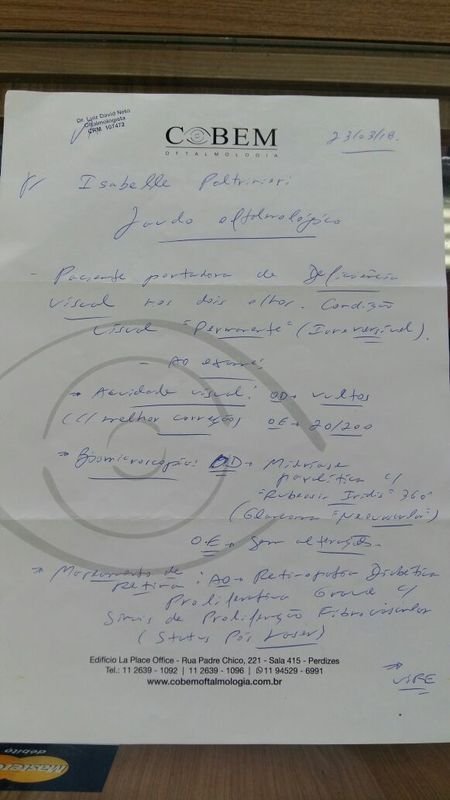 Dr. Luiz David Neto
Oftalmologista
CRM 107472
COBEM
OFTALMOLOGIA
23/03/18.
p/ Isabelle Poltrinieri
Laudo oftalmológico
- Paciente portadora de Deficiência
visual nos dois olhos. Condição
visual "Permanente" (Irreversível).
- Ao exame:
→ Acuidade visual: OD → vultos
(c/ melhor correção) OE → 20/200
→ Biomicroscopia: OD → Midríase
paralítica c/
"Rubeosis Iridis" 360°
(Glaucoma "Neovascular")
O.E → Sem alterações.
→ Mapeamento de
retina: AO → Retinopatia Diabética
Proliferativa Grave c/
Sinais de Proliferação Fibrovascular
(Status Pós Laser)
Edifício La Place Office - Rua Padre Chico, 221 - Sala 415 - Perdizes
Tel.: 11 2639 - 1092 | 11 2639 - 1096 | 11 94529 - 6991
www.cobemoftalmologia.com.br
⇒ VIRE
débito